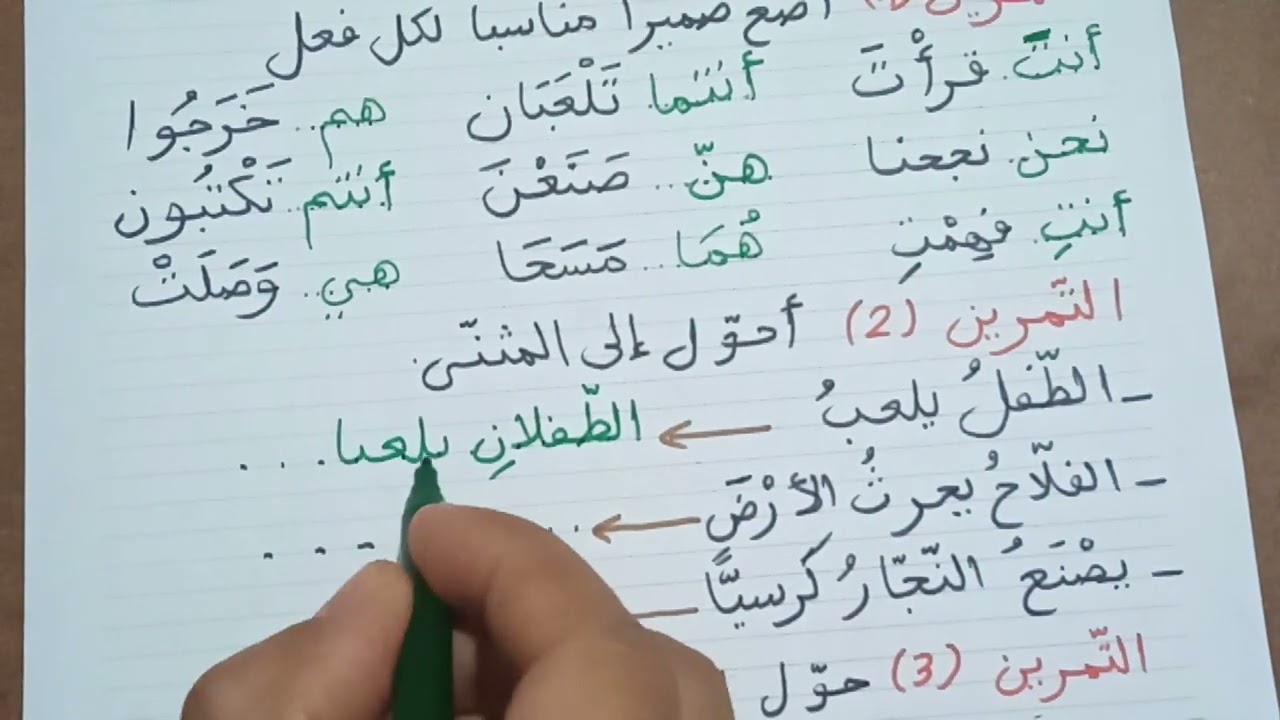 التمرين (1) أضع ضميرا مناسبا لكل فعل
أنتَ. قرأْتَ أنتما. تَلْعَبَان هم.. خَرَجُوا
نحن. نجحنا هنّ.. صَنَعْنَ أنتم.. تَكْتبُون
أنتِ. فهِمْتِ هُمَا.. مَسَحَا هي.. وَصَلَتْ
التّمرين (2) أحوّل إلى المثنّى.
- الطّفلُ يلعبُ ← الطّفلانِ يلعبا...
- الفلّاحُ يحرثُ الأرْضَ ← ..
- يصْنَعُ النّجّارُ كرسيًّا
التّمرين (3) حوّل